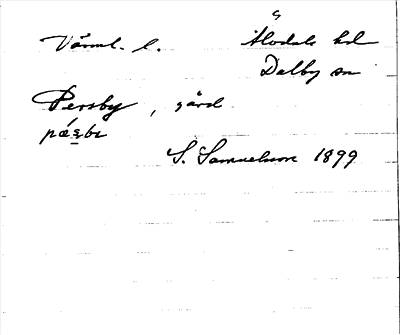 Värml. l. Älvdals hd
Dalby sn
Persby, gård
pæ̀ʂbɪ
S. Samuelsson 1899